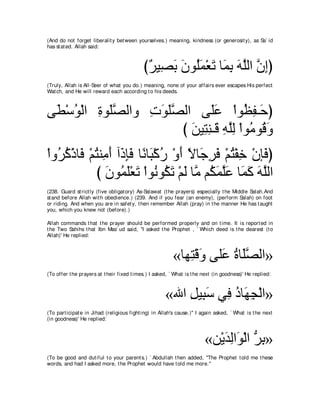 (And do not forget liberality between yourselves.) meaning, kindness (or generosity), as Sa`id
has stated. Allah said:
﴿إِنَّ اللَّهَ بِمَا تَعْمَلُونَ بَصِيرٌ﴾
(Truly, Allah is All-Seer of what you do.) meaning, none of your affairs ever escapes His perfect
Watch, and He will reward each according to his deeds.
﴿حَـفِظُواْ عَلَى الصَّلَوَتِ والصَّلَوةِ الْوُسْطَى
وَقُومُواْ لِلَّهِ قَـنِتِينَ ﴾
﴿فَإنْ خِفْتُمْ فَرِجَالاً أَوْ رُكْبَانًا فَإِذَآ أَمِنتُمْ فَاذْكُرُواْ
اللَّهَ كَمَا عَلَّمَكُم مَّا لَمْ تَكُونُواْ تَعْلَمُونَ ﴾
(238. Guard strictly (five obligatory) As-Salawat (the prayers) especially the Middle Salah. And
stand before Allah with obedience.) (239. And if you fear (an enemy), (perform Salah) on foot
or riding. And when you are in safety, then remember Allah (pray) in the manner He has taught
you, which you knew not (before).)
Allah commands that the prayer should be performed properly and on time. It is reported in
the Two Sahihs that Ibn Mas`ud said, "I asked the Prophet , `Which deed is the dearest (to
Allah)' He replied:
«الصَّلَاةُ عَلى وَقْتِهَا»
(To offer the prayers at their fixed times.) I asked, `What is the next (in goodness)' He replied:
«الْجِهَادُ فِي سَبِيلِ الله»
(To participate in Jihad (religious fighting) in Allah's cause.)" I again asked, `What is the next
(in goodness)' He replied:
«بِرُّ الْوَالِدَيْنِ»
(To be good and dutiful to your parents.) `Abdullah then added, "The Prophet told me these
words, and had I asked more, the Prophet would have told me more."